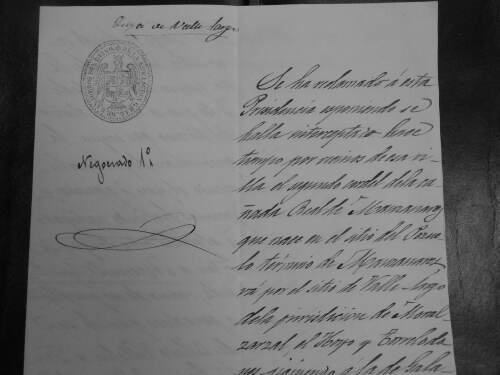 de Valle largo
Negociado 1º
Se ha reclamado á esta
Presidencia esponiendo se
halla interceptado hace
tiempo por vecinos de esa vi-
lla el segundo cordel de la ca-
ñada Real de Manzanares
que nace en el sitio del
lo término de Manzanares
vá por el sitio de Valle-largo
de la jurisdiccion de Moral
zarzal, el Hoyo y Torrelodo
nes siguiendo a la de Gala